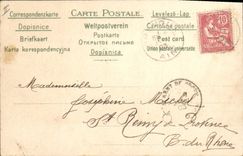 Correspondenzkarte CARTE POSTALE Levelező-Lap
Dopisnice Weltpostverein Cartolina postale
Briefkaart Postkarte Post card
Karta korespondencyjna ОТКРЫТОЕ ПИСЬМО Union postale universelle
Dopisnica
Mademoiselle
Joséphine
St Rémy de Provence
B. du Rhône